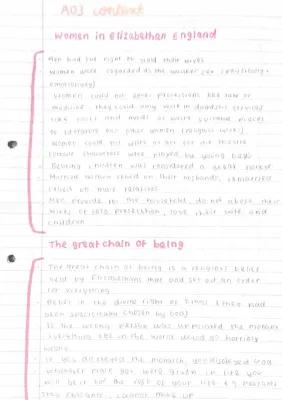 AO3 context
Women in Elizabethan England
Men had the right to scold their wives
Women were regarded as the weaker sex (physically +
emotionally)
Women could not enter professions like law or
medicine. They could only work in domestic service
like cooks and maids or write suitable pieces
to literature for other women (religious works)
Women could not vote or act for the theatre
female characters were played by young boys
Bearing children was considered a great honour
Married women relied on their husbands, unmarried
relied on male relatives
Men provide for the household, do not abuse their
wives, protection, love their wife and
children
The great chain of being
The great chain of being is a religious belief
held by Elizabethans that God set out an order
for everything
Belief in the divine right of kings (they had
been specifically chosen by God)
If the wrong person was the monarch
everything else in the world would go horribly
wrong
If you disobeyed the monarch, you disobeyed God
whichever place you were given in life you
will be in for the rest of your life eg peasants
stay peasants, cannot move up